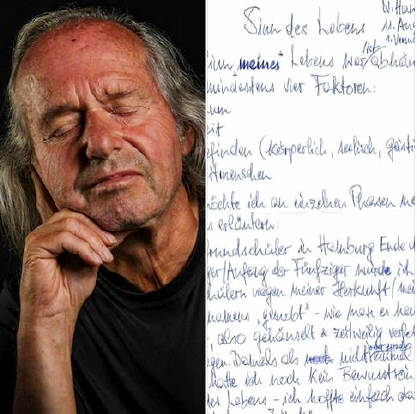 Sinn des Lebens
11. Aug
1. Versu
"meines" Lebens war/ist abhän
mindestens vier Faktoren:
um
it
efinden (körperlich, seelisch, geisti
Menschen
öchte ich an einzelnen Phasen me
s erläutern:
rundschüler in Hamburg Ende d
ger/Anfang der Fünfziger wurde ich
hülern wegen meiner Herkunft/mei
namens "gemobt" - wie man es heu
, also gehänselt & zeitweilig verfo
gen. Damals als
hatte ich noch kein Bewusstsein
es Lebens - ich hoffte einfach da